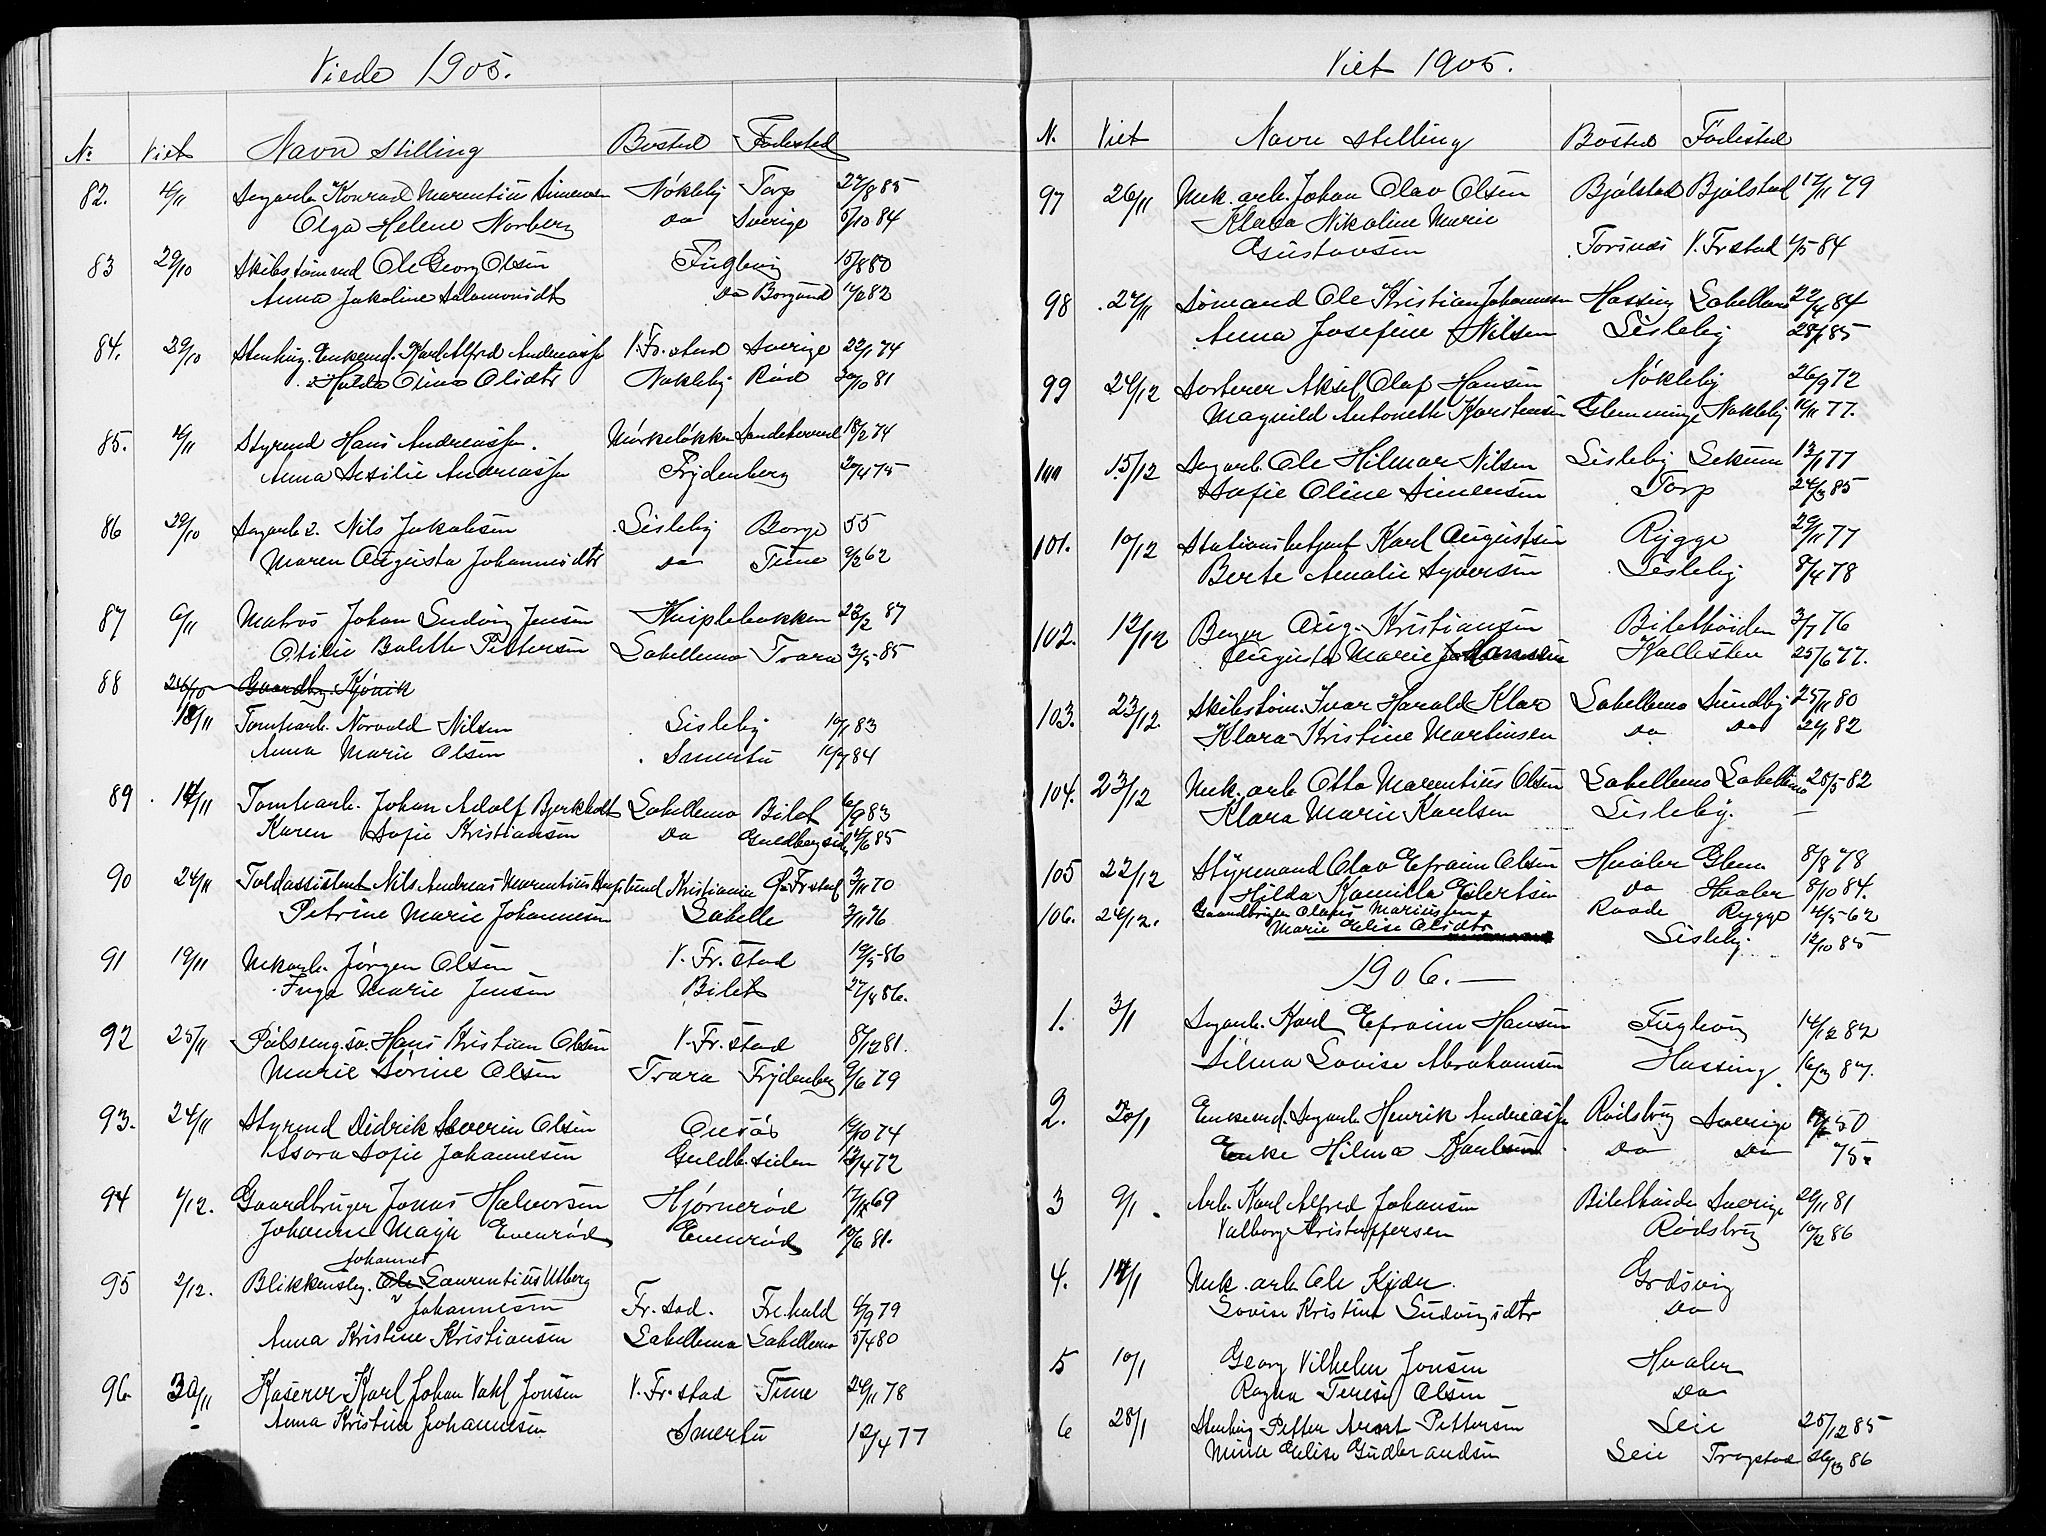 Viede 1905.
No Viet Navn Stilling Bosted Fødested
82. 4/11 Sagarb. Konrad Marentius Simensen Nøkleby Torp 27/8 85
Olga Helene Norberg do Sverige 5/10 84
83 29/10 Skibstømmd Ole Georg Olsen Fuglevig 15/8 80
Anna Jakoline Salamonsdt do Borgund
84. 29/10 Stenhug. Enkemd. Karl Alfred Andreassn V. Fr. stad Sverige 22/1 74
Hulda Olina Olsdtr Nøkleby Röd 30/10 81
85. 4/11 Styrmd Hans Andreassen. Mørkeløkken Sandehered 18/2 74
Anna Sesilie Andreassn Frydenberg 20/4 75
86 29/10 Sagarb. Nils Jakobsen Lisleby Borge 55
Maren Augusta Johannesdtr do Tune 9/2 62
87 6/11 Matros Johan Ludvig Jensen Kniplebakken 23/2 87
Otilie Bolette Pettersen Labellemo Trara 3/5 85
88 26/10 Gaardbr. Kjönik
18/11 Tomtearb. Norvald Nilsen Lisleby 10/1 83
Anna Marie Olsen Smertu 84
89 14/11 Tomtearb. Johan Adolf Bjerkholt Labellemo Bilet 6/9 83
Karen Sofie Kristiansen do Guldbergsid. 4/6 85
90 24/11 Toldassistent Nils Andreas Marentius Kristiania Gl. Fr.stad 3/11 70
Petrine Marie Johannesen Labelle 3/11 76
91 19/11 Mekarb. Jørgen Olsen V. Fr. stad 19/5 86
Inga Marie Jensen Bilet 27/8 86.
92 25/11 Hans Kristian Olsen V. Fr. stad 8/12 81.
Marie Sørine Olsen Trara Frydenberg 9/6 79
93. 24/11 Styrmd Didrik Severin Olsen Onsö 16/10 74
Assora Sofie Johannesen Guldb. siden 13/4 72
94 1/12. Gaardbruger Jonas Halvorsen Hjørnerød 69
Johanne Maja Evenrød Evenrød 10/6 81.
Johannes
95 2/12. Blikkenslg. Ole Laurentius Utberg
Johannesen Fr. stad. Fr. hald 4/9 79
Anna Kristine Kristiansen Labellemo Labellemo 5/4 80
96. 30/11 Kaserer Karl Johan Vahl Jonsen V. Fr. stad Tune 29/11 78
- Anna Kristine Johannesen Smertu 12/4 77
Viet 1905.
N. Viet Navn Stilling Bosted Födested
97 26/11 Mek. arb. Johan Olav Olsen Bjölstad Bjölstad 17/11 79
Klara Nikoline Marie
Gustavsen Torsnes V. Fr stad 1/5 84
98 27/11 Sømand Ole Kristian Johannesen Hassing Labellemo 22/4 84
Anna Josefine Nilsen Lisleby 85
99 24/12 Sorterer Aksel Olaf Hansen Nökleby 26/9 72
Magnild Antonette Karstensen Glemminge Nøkleby 16/11 77.
100 15/12 Sagarb. Ole Hilmar Nilsen Lisleby Lekum 13/1 77
Sofie Oline Simensen Torp 24/3 85
101. 10/12 Stationsbetjent Karl Augustsen Rygge 29/11 77
Berte Amalie Syversen Lisleby 8/4 78
102. 12/12 Bager Aug. Kristiansen Bilethöiden 3/7 76
Augusta Marie Johansen Hallesten 25/6 77.
103. 23/12. Skibstöm. Ivar Harald Klav Labellemo Sundby 25/11 80
Klara Kristine Martinsen do do 24/1 82
104. 23/12 Mek. arb. Otto Marentius Olsen Labellemo Labellemo 28/5 82
Klara Marie Karlsen Lisleby. -
105 22/12 Styrmand Olav Efraim Olsen Hvaler Glem 8/8 78
Hilda Kamilla Eilertsen do Hvaler 8/10 84.
106. 24/12. Gaardbruger Olaus Mariussen Raade Rygge 14/5 62
Marie Elise Olsdtr Lisleby. 12/10 85
1906. -
1. 3/1 Sagarb. Karl Efraim Hansen Fuglevig 14/12 82
Silma Lovise Abrahamsen Hassing. 16/3 87.
2. 20/1 Enkemd. Sagarb. Henrik Andreassn Rödsbrg Sverige 50
Enke Hilma Karlsen do do 75.
3 9/1 Arb. Karl Alfred Johansen Bilethöide Sverige 29/11 81
Valborg Kristoffersen Rödsbrg 10/2 86
4. 14/1 Mek. arb. Ole Kjær. Gresvig
Lovise Kristine Ludvigsdtr do
5 10/1 Georg Vilhelm Jonsen Hvaler
Ragna Terese Olsen do
6 28/1 Stenhug. Petter Arent Pettersen Leie 25/12 85
Mina Elise Gudbrandsen Leie Trøgstad 86